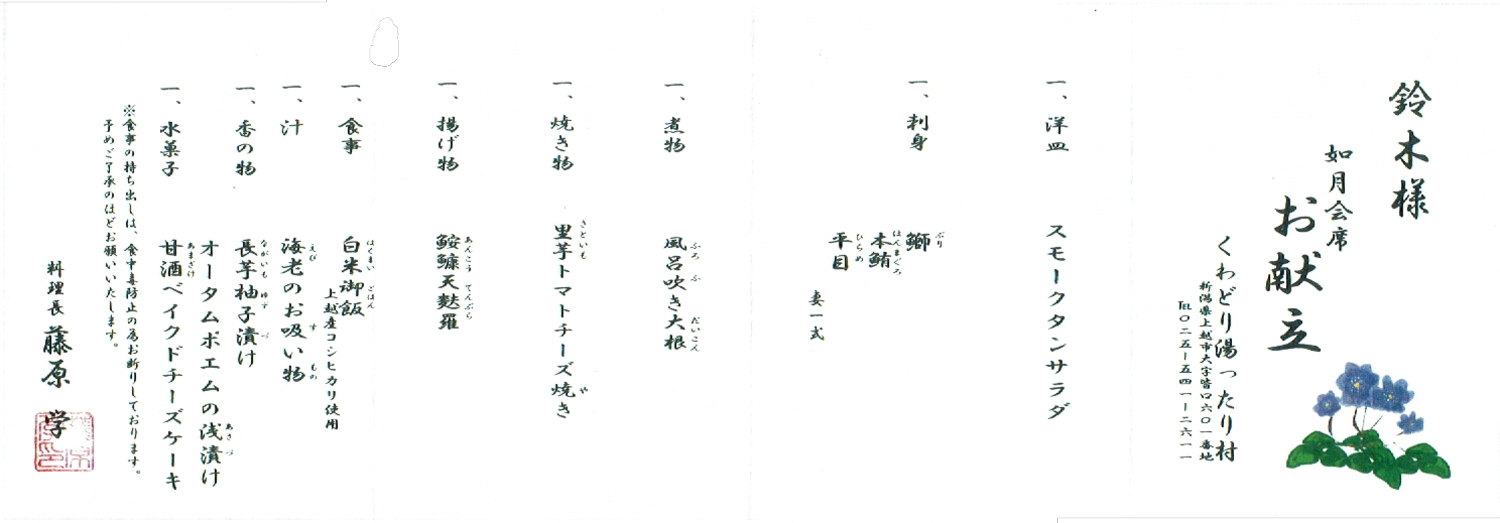 鈴木様
如月会席
お献立
くわどり湯ったり村
新潟県上越市大字皆口六〇一番地
℡〇二五ー五四一ー二六一一
一、洋皿 スモークタンサラダ
一、刺身 鰤
本鮪
平目
妻一式
一、煮物 風呂吹き大根
一、焼き物 里芋トマトチーズ焼き
一、揚げ物 鮟鱇天麩羅
一、食事 白米御飯
上越産コシヒカリ使用
一、汁 海老のお吸い物
一、香の物 長芋柚子漬け
オータムポエムの浅漬け
一、水菓子 甘酒ベイクドチーズケーキ
※食事の持ち出しは、食中毒防止の為お断りしております。
予めご了承のほどお願いいたします。
料理長 藤原 学